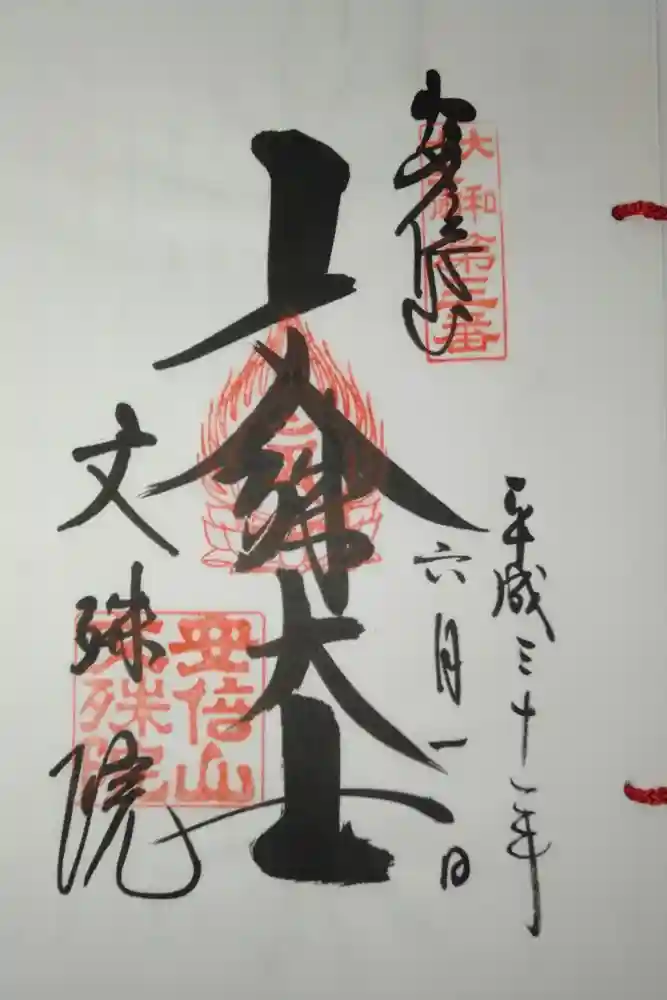 安倍山
大和
第三番
平成三十一年
六月一日
文殊大士
文殊院
安倍山
文殊院